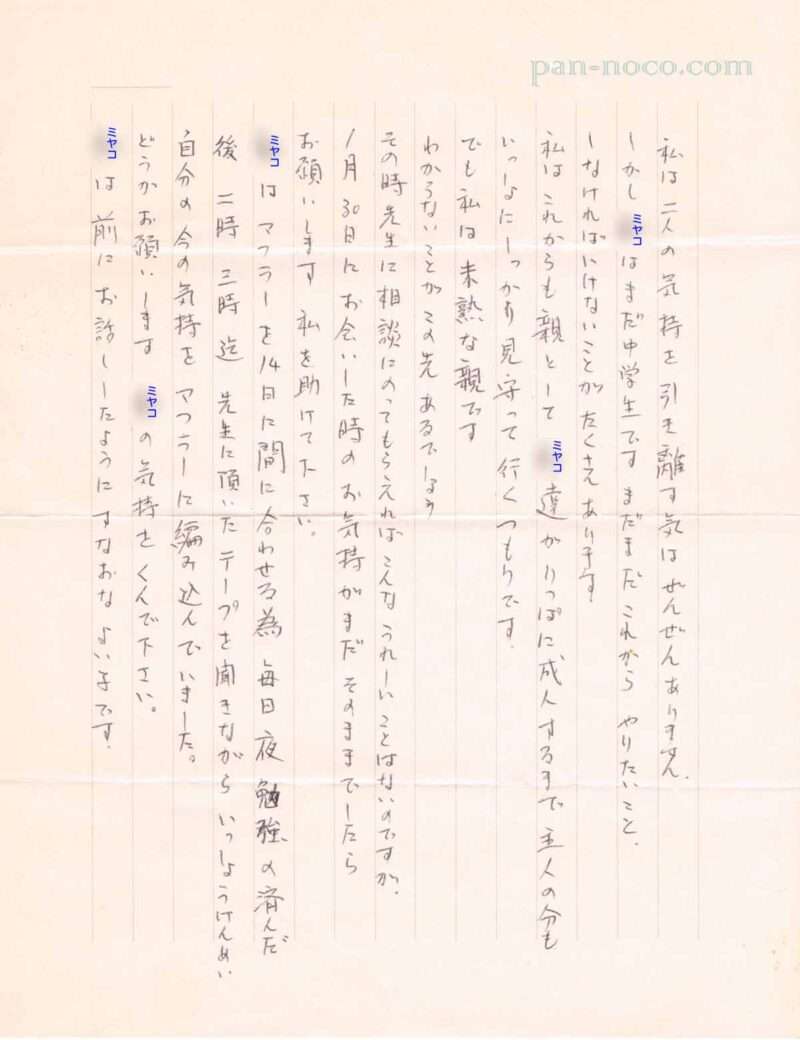 pan-noco.com
私は二人の気持を引き離す気はぜんぜんありません.
しかしミヤコはまだ中学生です まだまだこれから やりたいこと.
しなければいけないことがたくさんあります.
私はこれからも親として ミヤコ達がりっぱに成人するまで主人の分も
いっしょにしっかり見守って行くつもりです.
でも私は未熟な親です
わからないことがこの先あるでしょう
その時先生に相談にのってもらえればこんなうれしいことはないのですが.
1月30日にお会いした時のお気持がまだそのままでしたら
お願いします 私を助けて下さい。
ミヤコはマフラーを14日に間に合わせる為 毎日夜勉強の済んだ
後 二時 三時迄 先生に頂いたテープを聞きながら いっしょうけんめい
自分の今の気持をマフラーに編み込んでいました。
どうかお願いします ミヤコの気持をくんで下さい。
ミヤコは前にお話ししたようにすなおなよい子です.